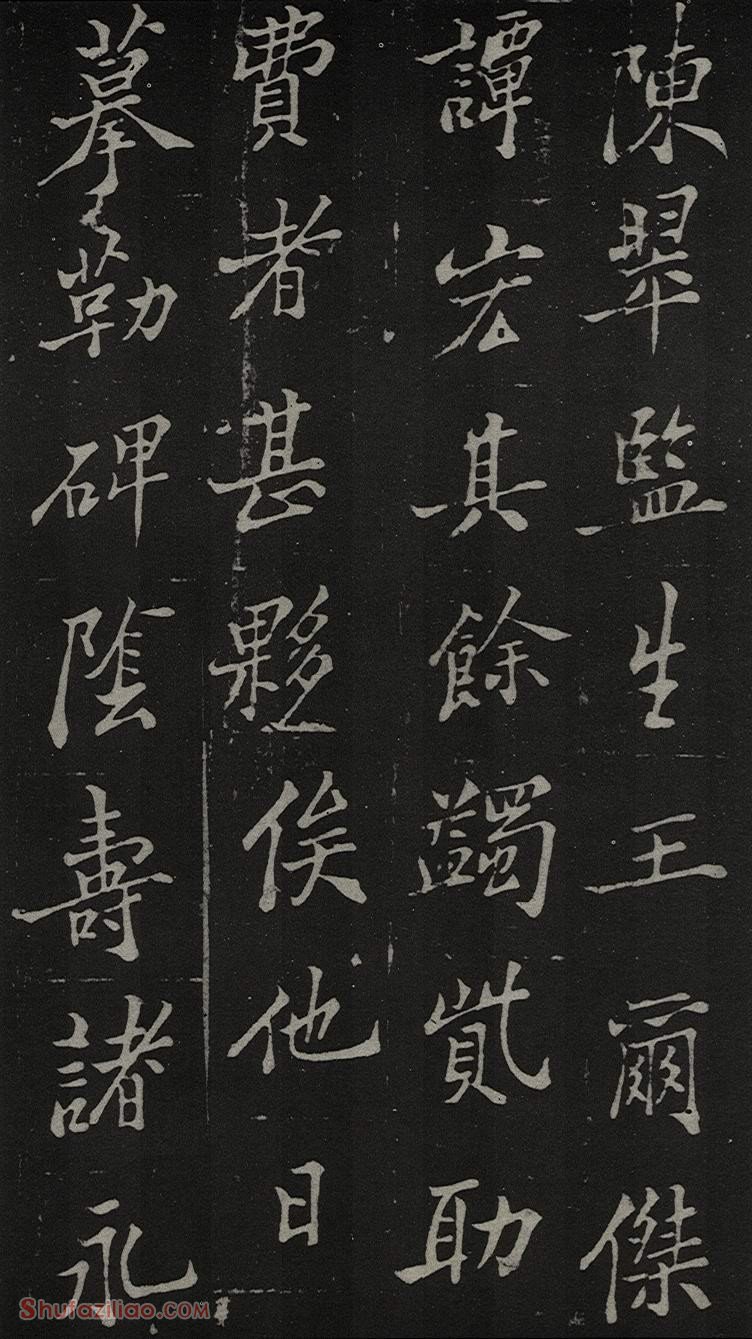 陳斝監生王爾傑
譚宏其餘蠲貲助
費者甚夥俟他日
摹勒碑陰壽諸永
Shufaziliao.com